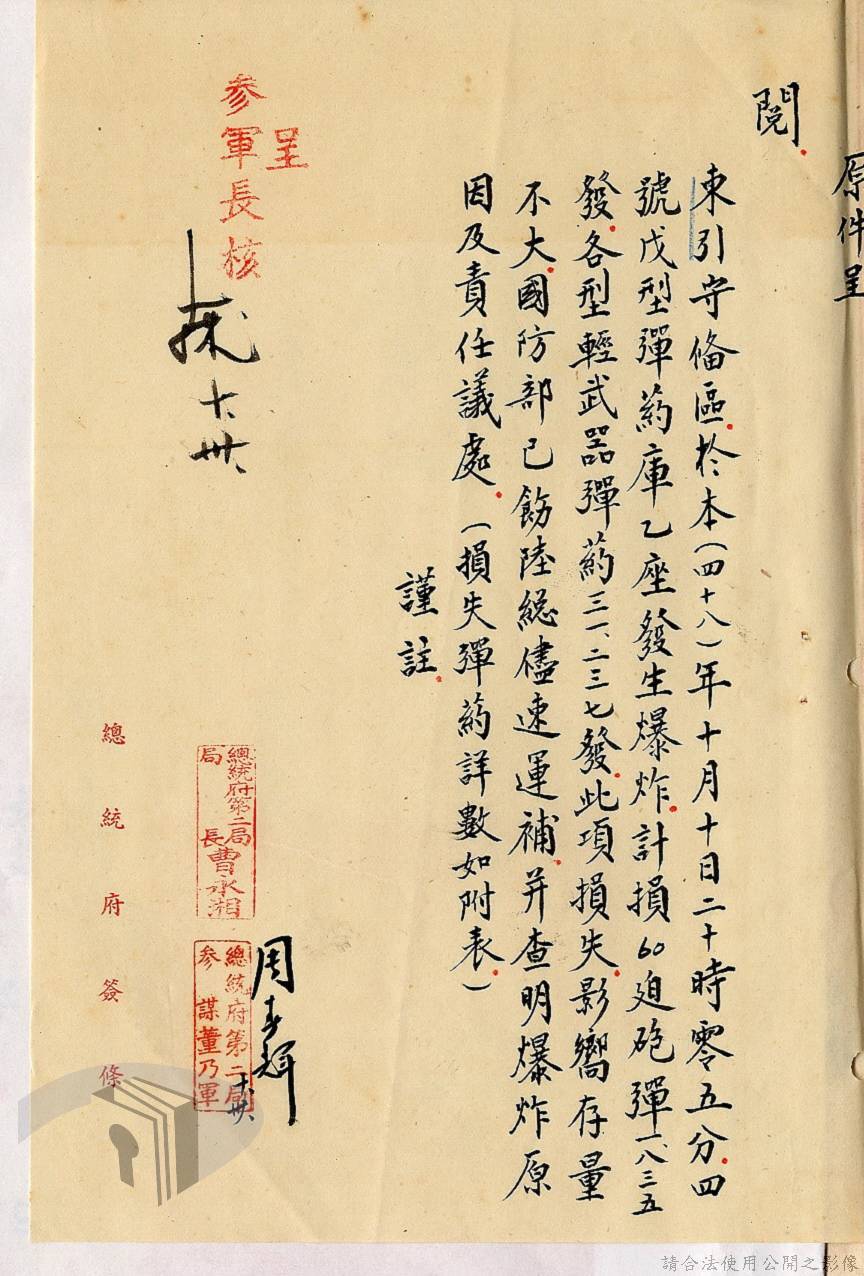 原件呈
閱.
東引守備區.於本(四十八)年十月十日二十時零五分.四
號戊型彈葯庫乙座發生爆炸.計損60廹砲彈一、八三五
發.各型輕武器彈葯三一、二三七發.此項損失.影嚮存量
不大.國防部已飭陸總儘速運補.并查明爆炸原
因及責任議處.(損失彈葯詳數如附表.)
謹註.
呈
參軍長核
十、卅、
周
總統府第二局
局長曹永湘
總統府第二局
參謀董乃軍
十、卅、
總統府簽條
請合法使用公開之影像